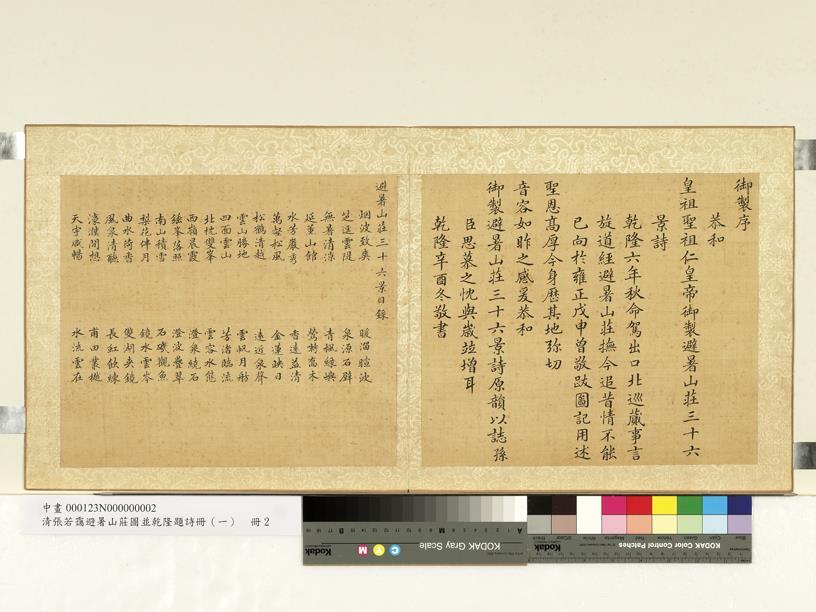 御製序
恭和
皇祖聖祖仁皇帝御製避暑山莊三十六
景詩
乾隆六年秋命駕出口北巡蕆事言
旋道經避暑山莊撫今追昔情不能
已向於雍正戊申曾敬跋圖記用述
聖恩高厚今身歷其地弥切
音容如昨之感爰恭和
御製避暑山莊三十六景詩原韻以誌孫
臣思慕之忱與歲竝增耳
乾隆辛酉冬敬書
避暑山莊三十六景目錄
烟波致爽 暖溜暄波
芝逕雲隄 泉源石壁
無暑清涼 青楓綠嶼
延薰山館 鶯囀喬木
水芳巖秀 香遠益清
萬壑松風 金蓮映日
松鶴清越 遠近泉聲
雲山勝地 雲帆月舫
四面雲山 芳渚臨流
北枕雙峯 雲容水態
西嶺晨霞 澄泉繞石
錘峯落照 澄波疊翠
南山積雪 石磯觀魚
梨花伴月 鏡水雲岑
曲水荷香 雙湖夾鏡
風泉清聽 長虹飲練
濠濮間想 甫田叢樾
天宇咸暢 水流雲在
中畫 000123N000000002
清張若靄避暑山莊圖並乾隆題詩冊（一） 冊 2
KODAK Gray Scale
Kodak
C Y M
KODAK Color Control Patches
Kodak